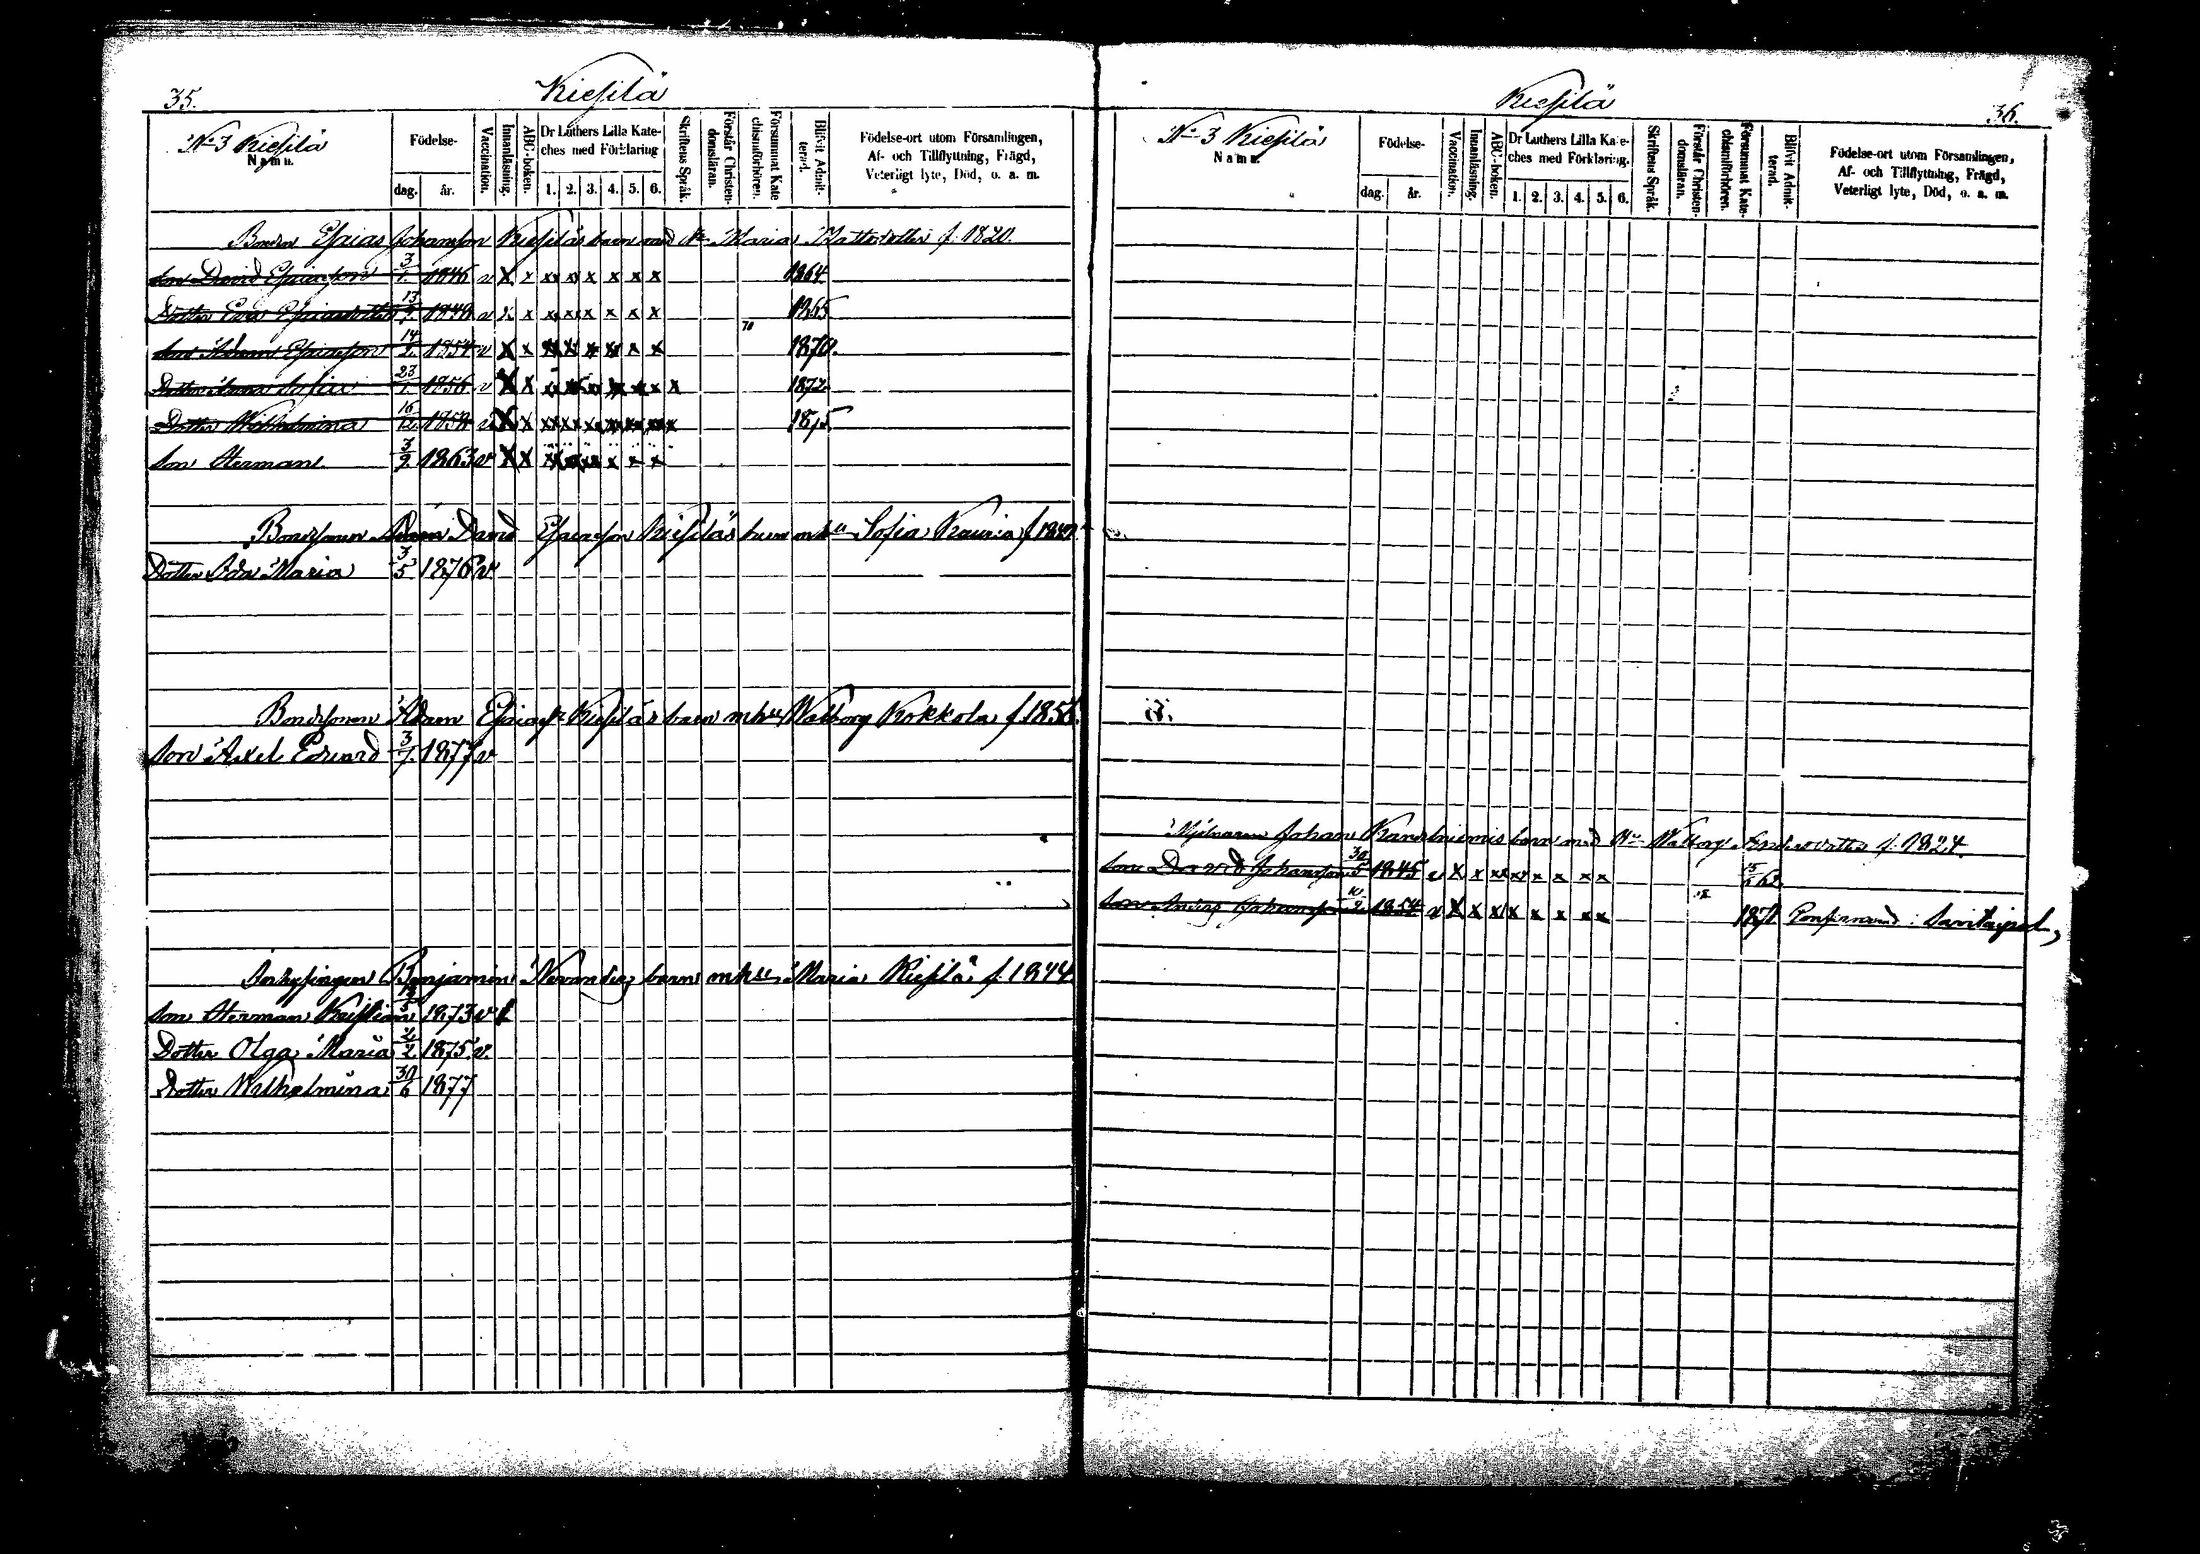 35.
Kiesilä
No 3 Kiesilä
Namn.
Födelse-
dag. år.
Vaccination.
Innanläsning.
ABC-boken.
Dr Luthers Lilla Kate-
ches med Förklaring
1. 2. 3. 4. 5. 6.
Skriftens Språk.
Förstår Christen-
domsläran.
Försummat Kate
chismiförhören.
Blifvit Admit-
terad.
Födelse-ort utom Församlingen,
Af- och Tillflyttning, Frägd,
Veterligt lyte, Död, o. a. m.
Bonden Esaias Johansson Kiesiläs barn med Hu Maria Mattsdotter f. 1820.
Son David Esaiasson 3/1. 1846 v x x x x x x x x 1864
Dotter Eva Esaiasdotter 13 1849 v x x x x x x x x 1865
70
Son Adam Esaiasson 14/2. 1854 v x x x x x x x x 1870.
Dotter Anna Sofia 23/1. 1856 v x x x x x x x x x 1872
Dotter Wilhelmina 16/12 v x x x x x x x x x 1875
Son Herman 3/9 1863 v x x x x x x x x
Bondsonen David Esaiasson Kiesiläs barn m hu Sofia Kauria f.
Dotter Ida Maria 3/5 1876 v
Bondsonen Adam Esaiass. Kiesiläs barn m hu Walborg Kokkola f. 185
Son Axel Edvard 3/7. 1877 v
Inhysingen Benjamin barn m hu Maria Kiesilä f. 1844.
Son Herman Kristian 1873 v
Dotter Olga Maria 2/2 1875 v.
Dotter Wilhelmina 30/6 1877
Kiesilä
36.
No 3 Kiesilä
Namn.
Födelse-
dag. år.
Vaccination.
Innanläsning.
ABC-boken.
Dr Luthers Lilla Kate-
ches med Förklaring.
1. 2. 3. 4. 5. 6.
Skriftens Språk.
Förstår Christen-
domsläran.
Försummat Kate-
chismiförhören.
Blifvit Admit-
terad.
Födelse-ort utom Församlingen,
Af- och Tillflyttning, Frägd,
Veterligt lyte, Död, o. a. m.
Mjölnaren Johan barn med Hu Walborg f. 1824.
Son David Johansson 30/5 1845 v x x x x x x x x
Son Johansson 10/2 1854 v x x x x x x x x 1871 Confirmerad i Savitaipal,